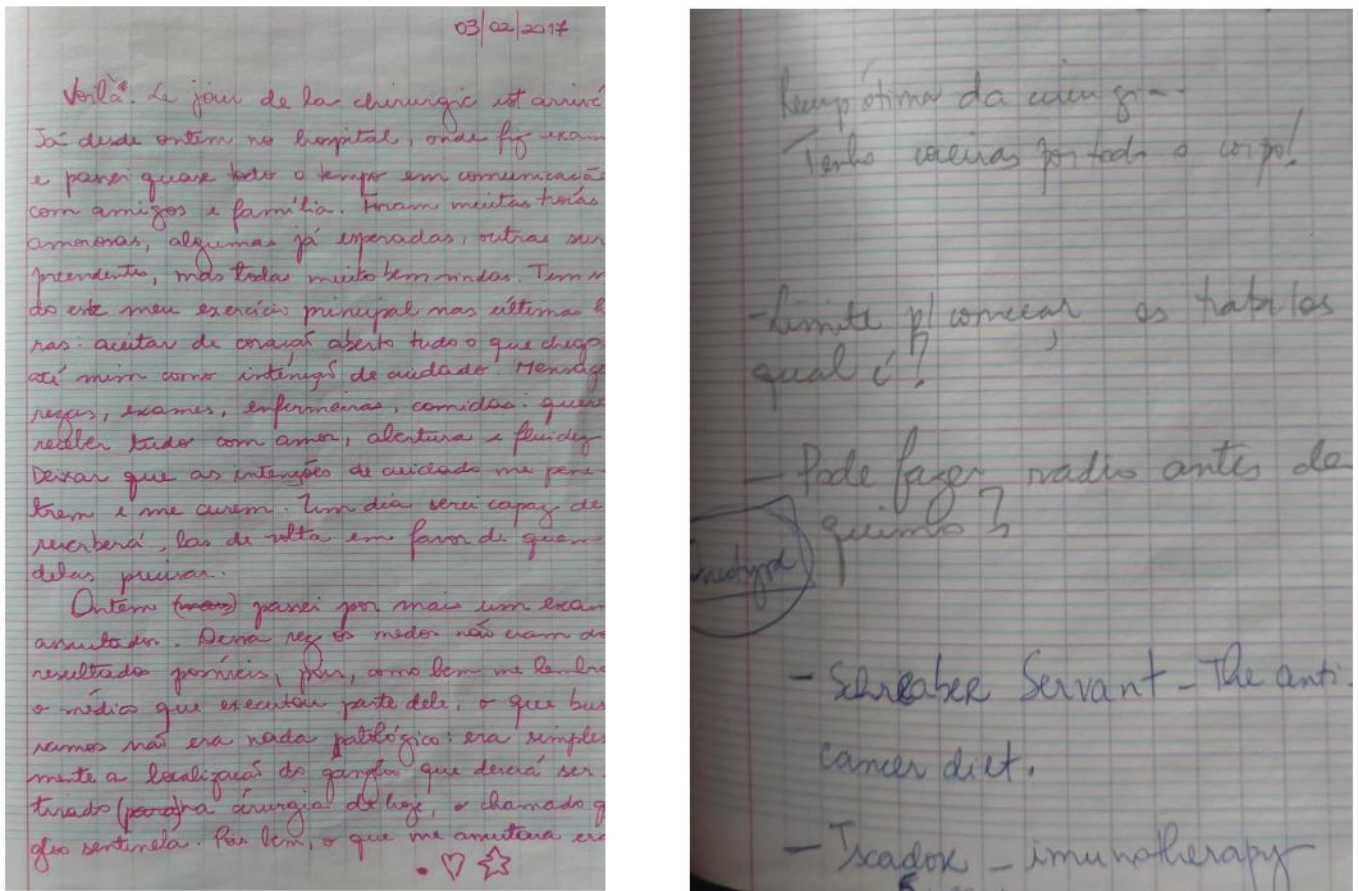 03/02/2017
Voilà. Le jour de la chirurgie est arrivé
Já desde ontem no hospital, onde fiz exam
e passei quase todo o tempo em comunicaçã
com amigos e família. Foram muitas trocas
amorosas, algumas já esperadas, outras sur
preendentes, mas todas muito bem vindas. Tem si
do este meu exercício principal nas últimas h
ras: aceitar de coração aberto tudo o que chega
até mim como intenção de cuidado. Mensage
rezas, exames, enfermeiras, comidas: quero
receber tudo com amor, abertura e fluidez
Deixar que as intenções de cuidado me pene-
trem e me curem. Um dia serei capaz de
reverberá-las de volta em favor de quem
delas precisar.
Ontem (mas) passei por mais um exam
assustador. Dessa vez os medos não eram do
resultados possíveis, pois, como bem me lembro
o médico que executou parte dele, o que bus
camos não era nada patológico: era simples
mente a localização do ganglio que deverá ser
tirado (para) na cirurgia de hoje, o chamado g
glio sentinela. Pois bem, o que me assustava era
Recup ótima da cirurgia--
Tenho coceiras por todo o corpo!
- Limite p/ começar os trabalos
qual é?
- Pode fazer radio antes da
quimio?
- Schreaber Servant - The anti-
cancer diet.
- Iscador - imunotherapy